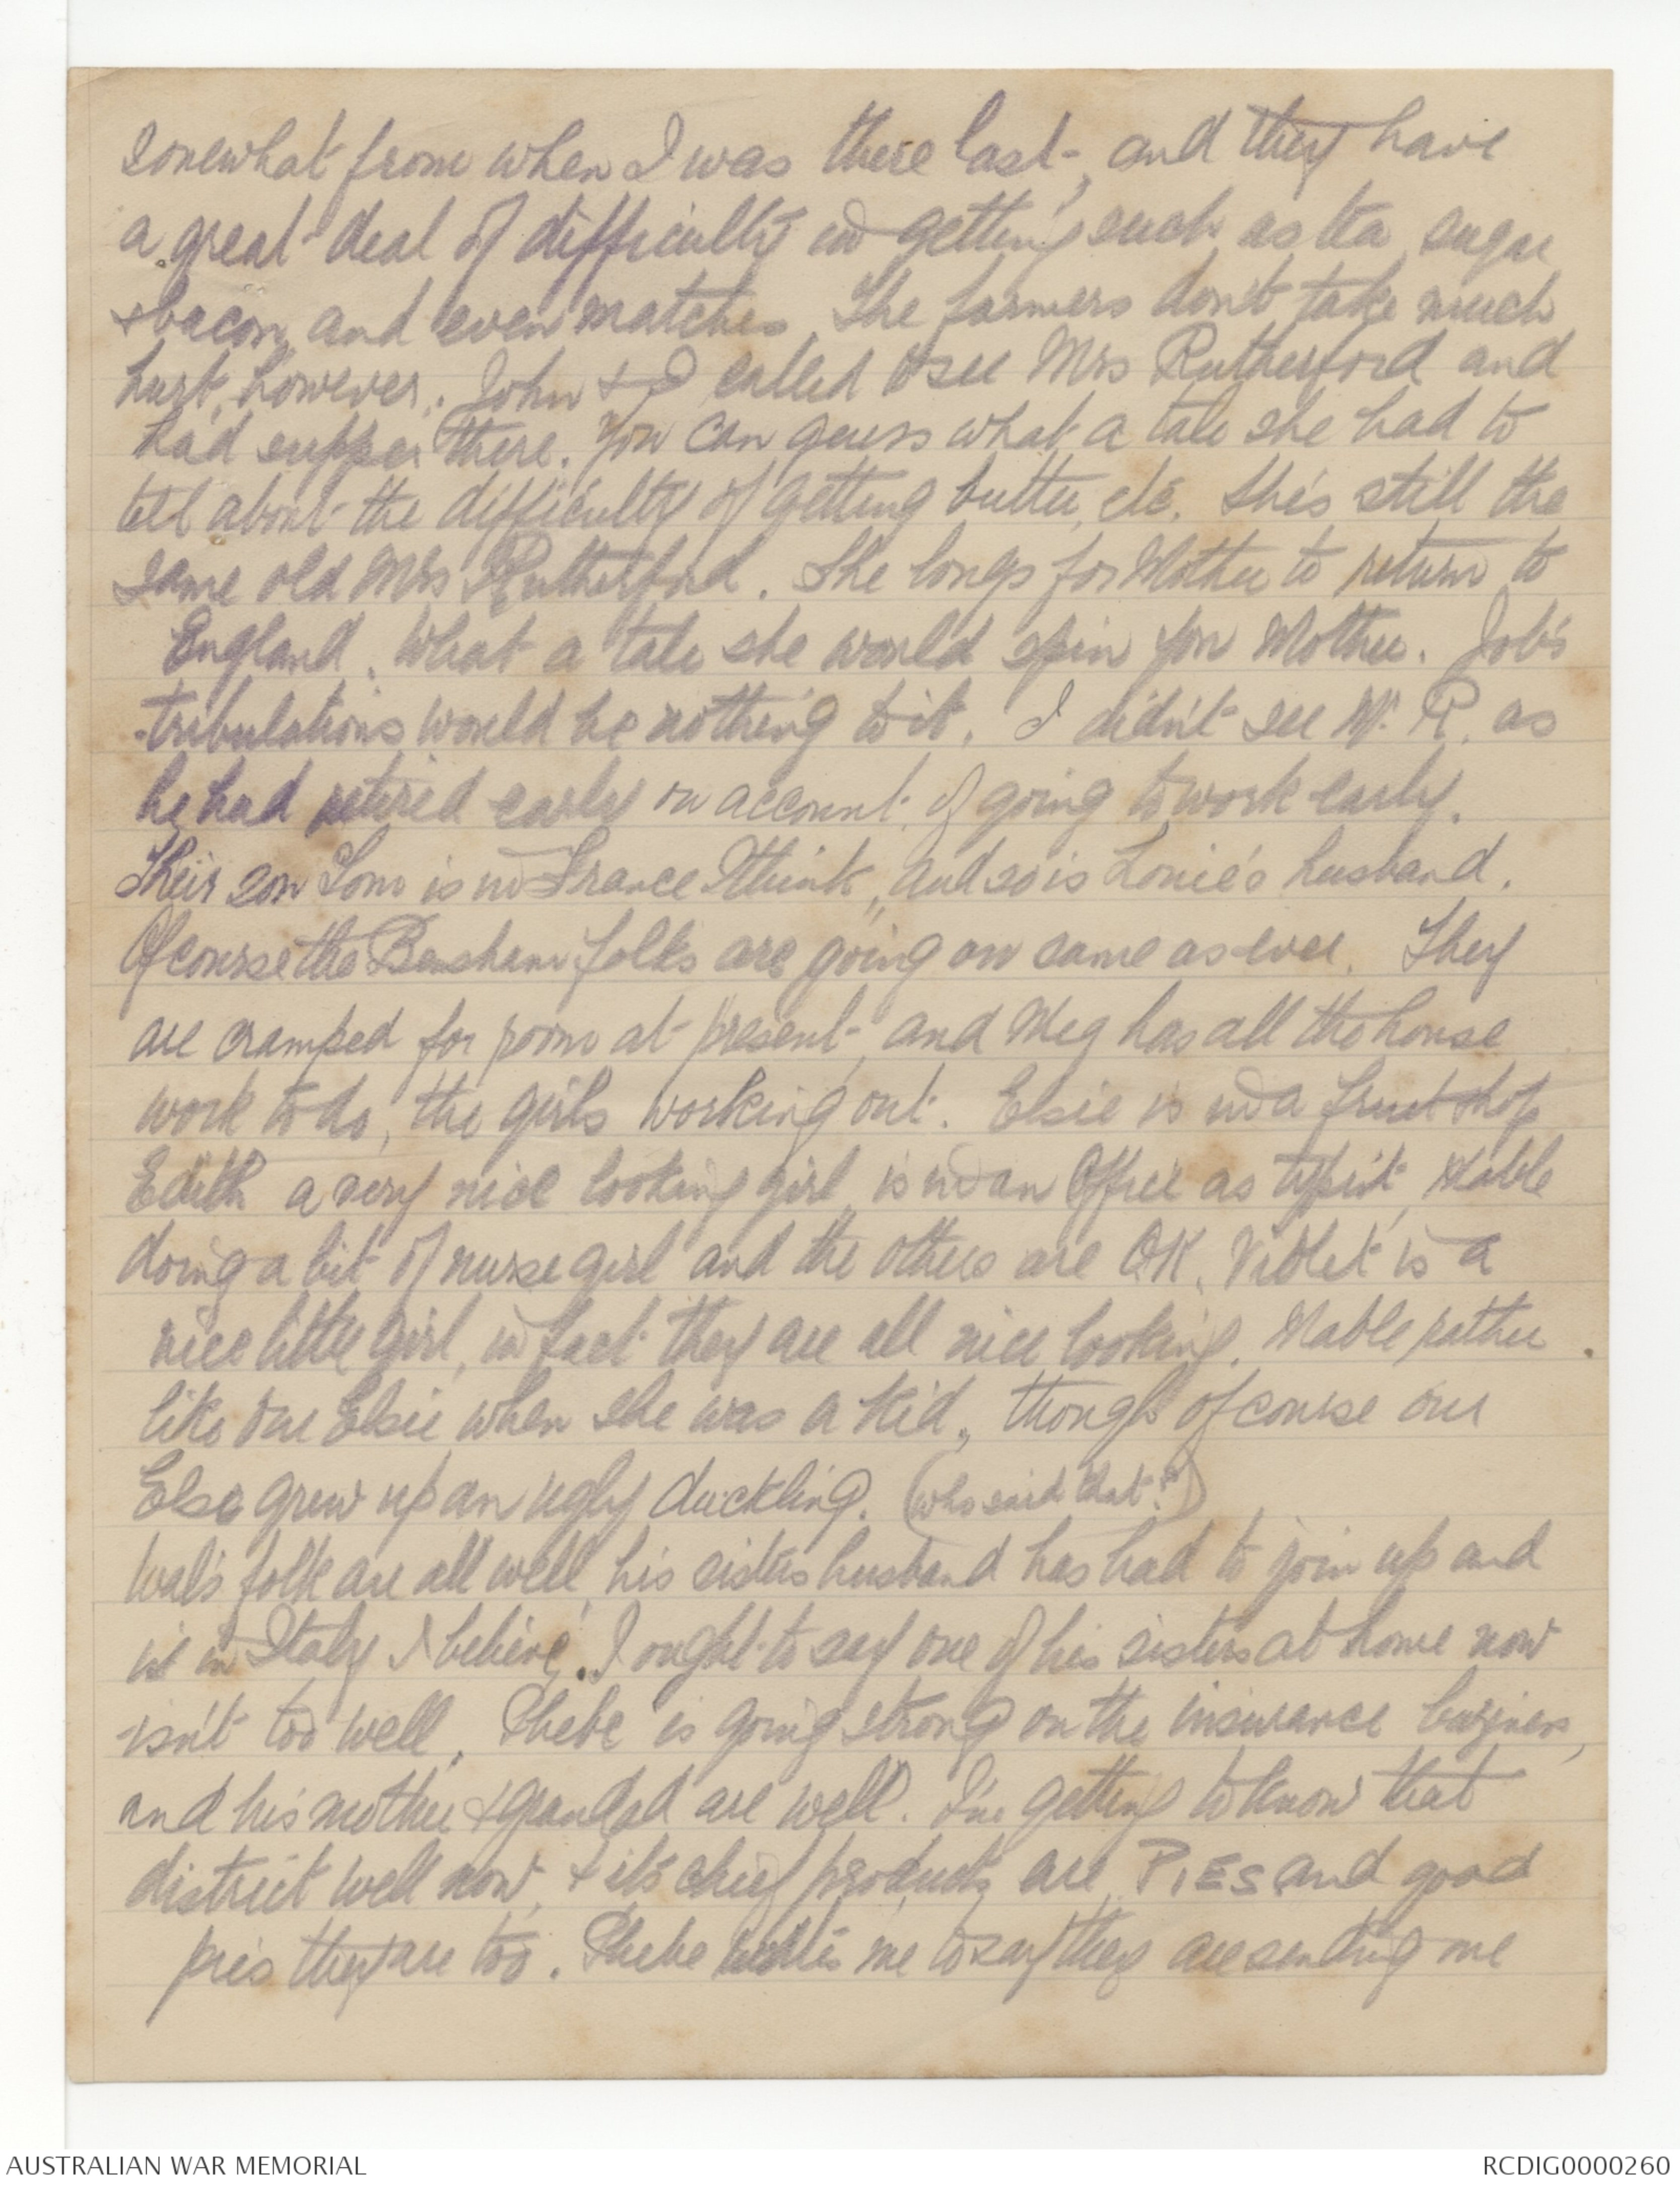 somewhat from when I was there last, and they have
a great deal of difficulty in getting such as tea sugar
& bacon, and even matches. The farmers don't take much
hurt, however. John & I called to see Mrs Rutherford and
had supper there. You can guess what a tale she had to
tell about the difficulty of getting butter, etc. She's still the
same old Mrs Rutherford. She longs for Mother to return to
England. What a tale she would spin for Mother. Job's
tribulations would be nothing to it. I didn't see Mr. R. as
he had retired early on account of going to work early.
Their son Tom is in France I think, and so is Lonie's husband.
Of course the Bensham folks are going on same as ever. They
are cramped for room at present, and Meg has all the house
work to do, the girls working out. Elsie is in a fruit shop
Edith a very nice looking girl, is in an Office as typist, Mable
doing a bit of nurse girl and the others are OK. Violet is a
nice little girl, in fact they are all nice looking. Mable rather
like our Elsie when she was a kid, though of course our
Else grew up an ugly duckling. (who said that?)
Wal's folk are all well, his sisters husband has had to join up and
is in Italy I believe. I ought to say one of his sisters at home now
isn't too well. Phebe is going strong on the insurance business,
and his mother & grandad are well. I'm getting to know that
district well now, & it's chief products are PIES and good
pies they are too. Phebe me to say they are sending me
AUSTRALIAN WAR MEMORIAL
RCDIG0000260